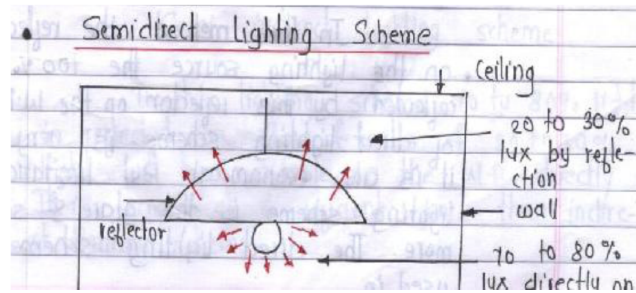 • Semidirect lighting Scheme
ceiling
20 to 30%
lux by refle-
ction
wall
reflector
70 to 80%
lux directly on